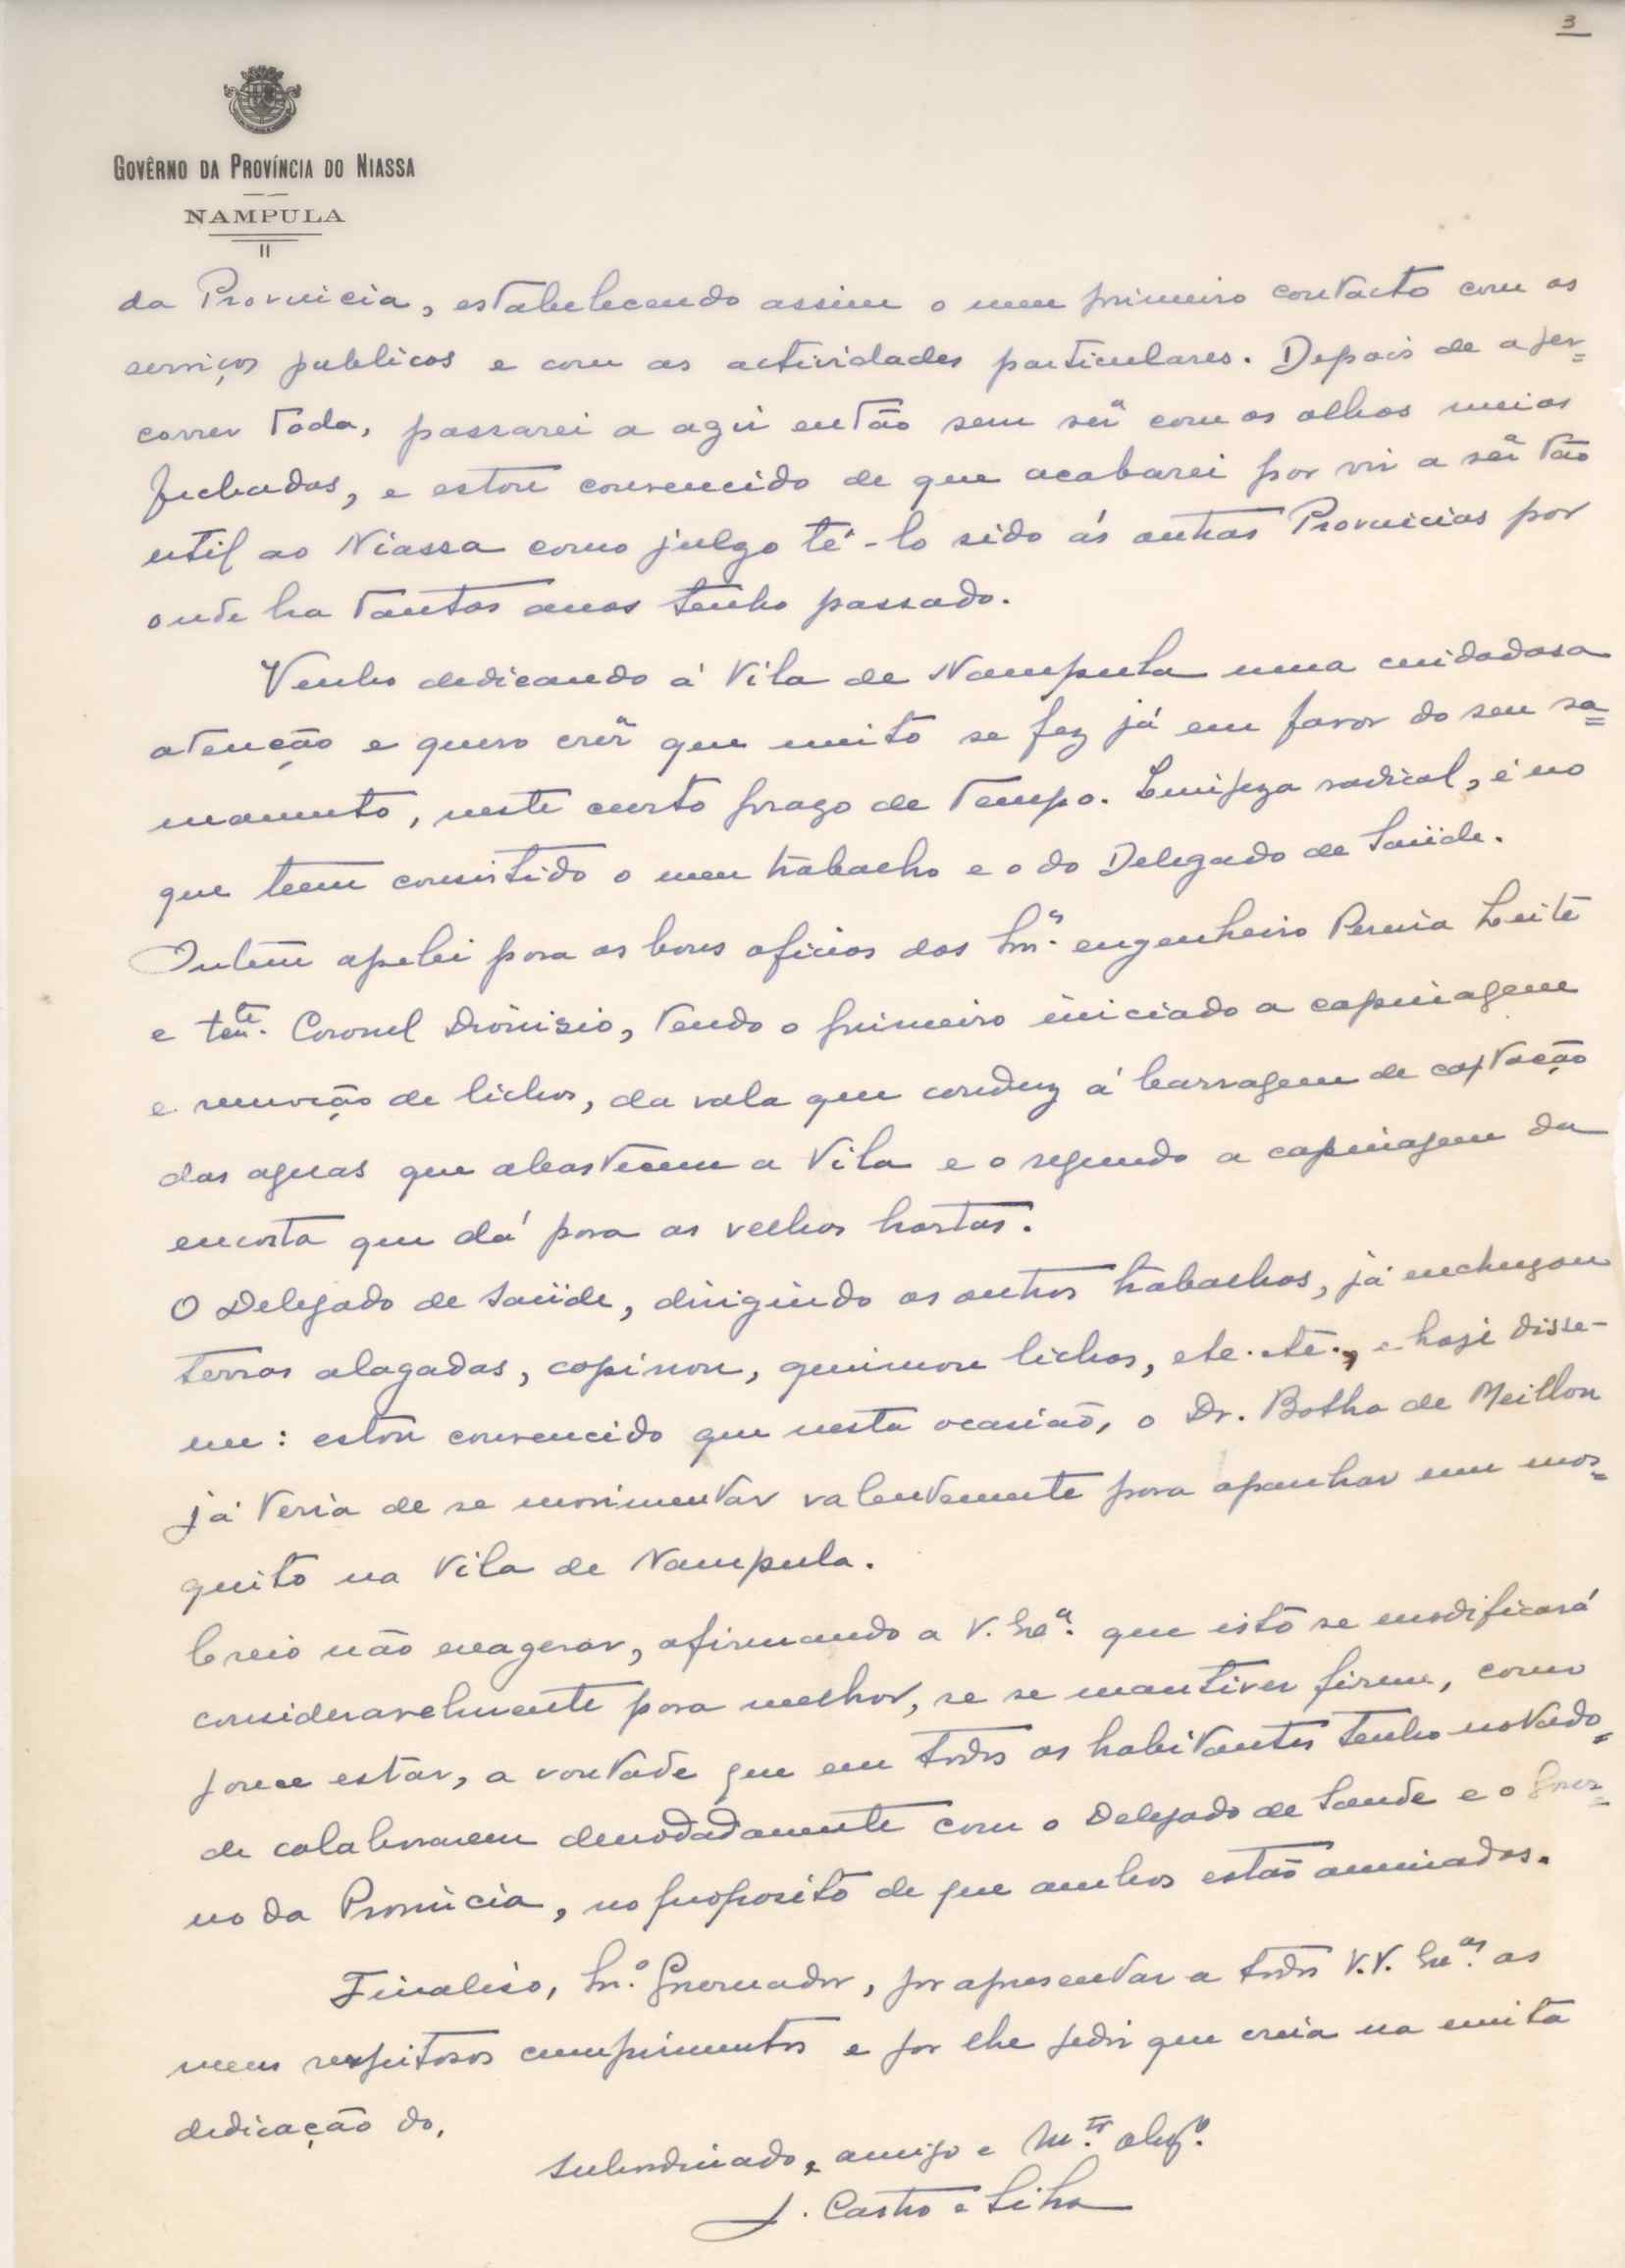 3
GOVÊRNO DA PROVÍNCIA DO NIASSA
NAMPULA
da Provincia, estabelecendo assim o meu primeiro contacto com os
serviços publicos e com as actividades particulares. Depois de a per=
correr toda, passarei a agir então sem sêr com os olhos meios
fechados, e estou convencido de que acabarei por vir a sêr tão
util ao Niassa como julgo tê-lo sido ás outras Provincias por
onde ha tantos anos tenho passado.
Venho dedicando á Vila de Nampula uma cuidadosa
atenção e quero crêr que muito se fez já em favor do seu sa=
neamento, neste curto prazo de tempo. Limpeza radical, é no
que teem consistido o meu trabalho e o do Delegado de Saúde.
Ontem apelei para os bons oficios dos Snrs. engenheiro Pereira Leite
e tente. Coronel Dionisio, tendo o primeiro iniciado a capinagem
e remoção de lichos, da vala que conduz á barragem de captação
das aguas que abastecem a Vila e o segundo a capinagem da
encosta que dá para as velhas hortas.
O Delegado de Saúde, dirigindo os outros trabalhos, já enchugou
terras alagadas, capinou, queimou lichos, etc. etc., e hoje disse-
me: estou convencido que nesta ocasião, o Dr. Botha de Meillon
já teria de se movimentar valentemente para apanhar um mos=
quito na Vila de Nampula.
Creio não exagerar, afirmando a V. Exª. que isto se modificará
consideravelmente para melhor, se se mantiver firme, como
parece estar, a vontade que em todos os habitantes tenho notado,
de colaborarem denodadamente com o Delegado de Saude e o Gover=
no da Provincia, no proposito de que ambos estão animados.
Finaliso, Snr. Governador, por apresentar a todos V.V. Exas. os
meus respeitosos cumprimentos e por lhe pedir que creia na muita
dedicação do,
subordinado, amigo e Mto. obgº.
J. Castro e Silva